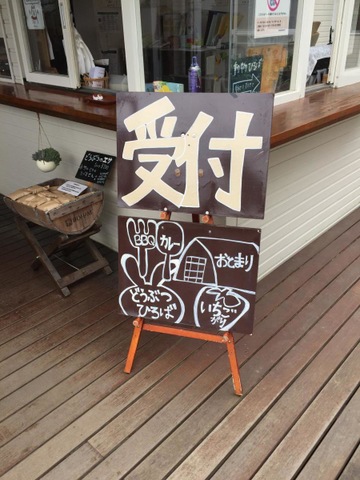 受付
BBQ
カレー
おとまり
どうぶつ
ひろば
いちご
狩り
どうぶつのエサ